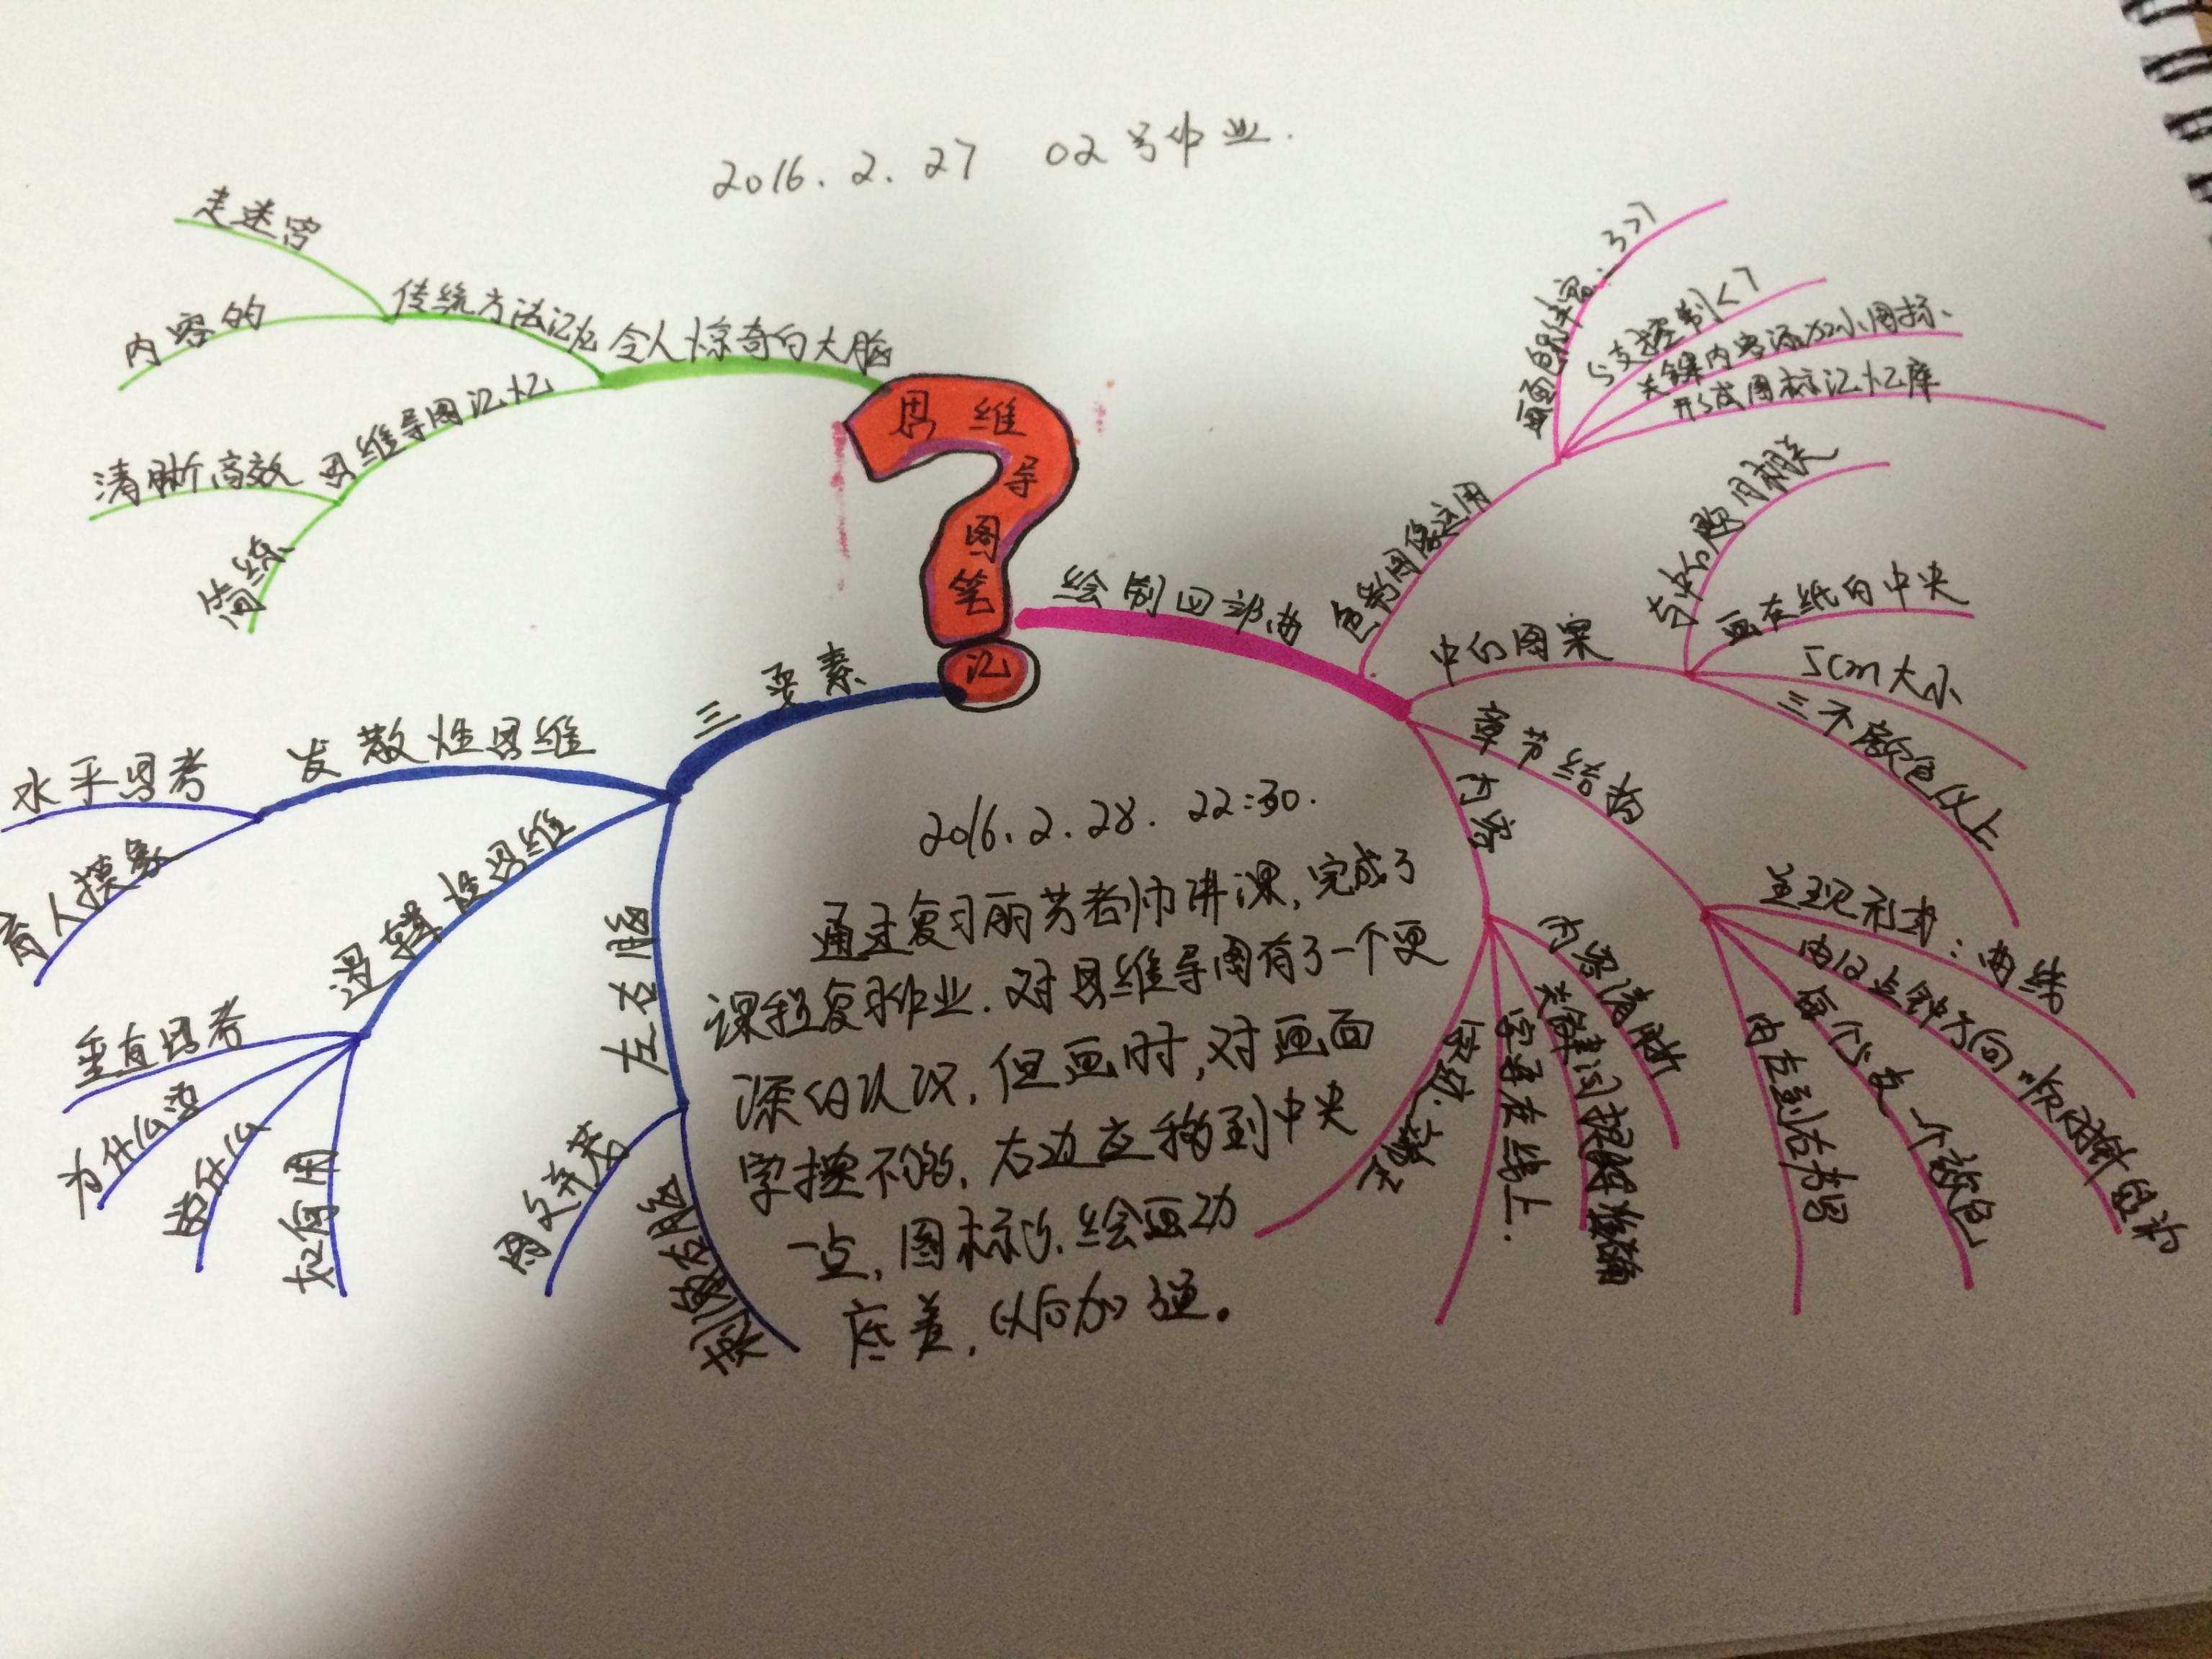 2016.2.27 02号作业.
思维导图笔记
绘制四部曲
色彩图像运用
5支控制<7
关键内容添加小图标、
形成图标记忆库
中心图案
与中心题目相关
画在纸的中央
5cm大小
三个颜色以上
章节结构
呈现形式:曲线
由12点钟方向顺时针绘制
每个分支一个颜色
由左到右书写
内容
内容清晰
关键词提取准确
字要在线上.
三要素
左右脑
刺激右脑
图文并茂
逻辑性思维
如何用
是什么
为什么要
垂直思考
发散性思维
盲人摸象
水平思考
令人惊奇的大脑
思维导图记忆
简练
清晰高效
传统方法记忆
内容的
走迷宫
2016.2.28. 22:30.
通过复习丽芳老师讲课,完成了
课程复习作业.对思维导图有了一个更
深的认识,但画时,对画面
掌控不够,右边应移到中央
一点,图标少.绘画功
底差,以后加强。